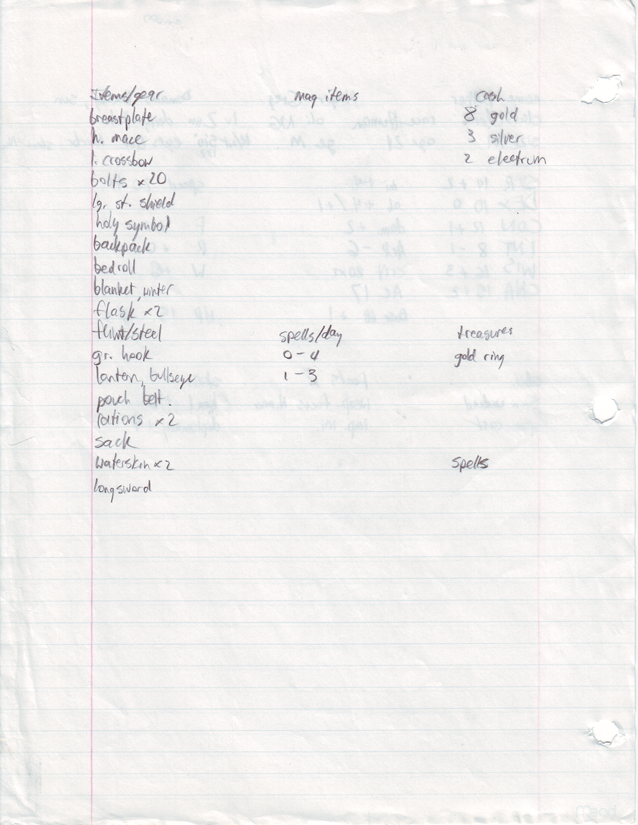 Items/gear mag items cash
breastplate 8 gold
h. mace 3 silver
l. crossbow 2 electrum
bolts x20
lg. st. shield
holy symbol
backpack
bedroll
blanket, winter
flask x2
flint/steel spells/day treasures
gr. hook 0-4 gold ring
lantern, bullseye 1-3
pouch belt.
rations x2
sack
waterskin x2 spells
longsword